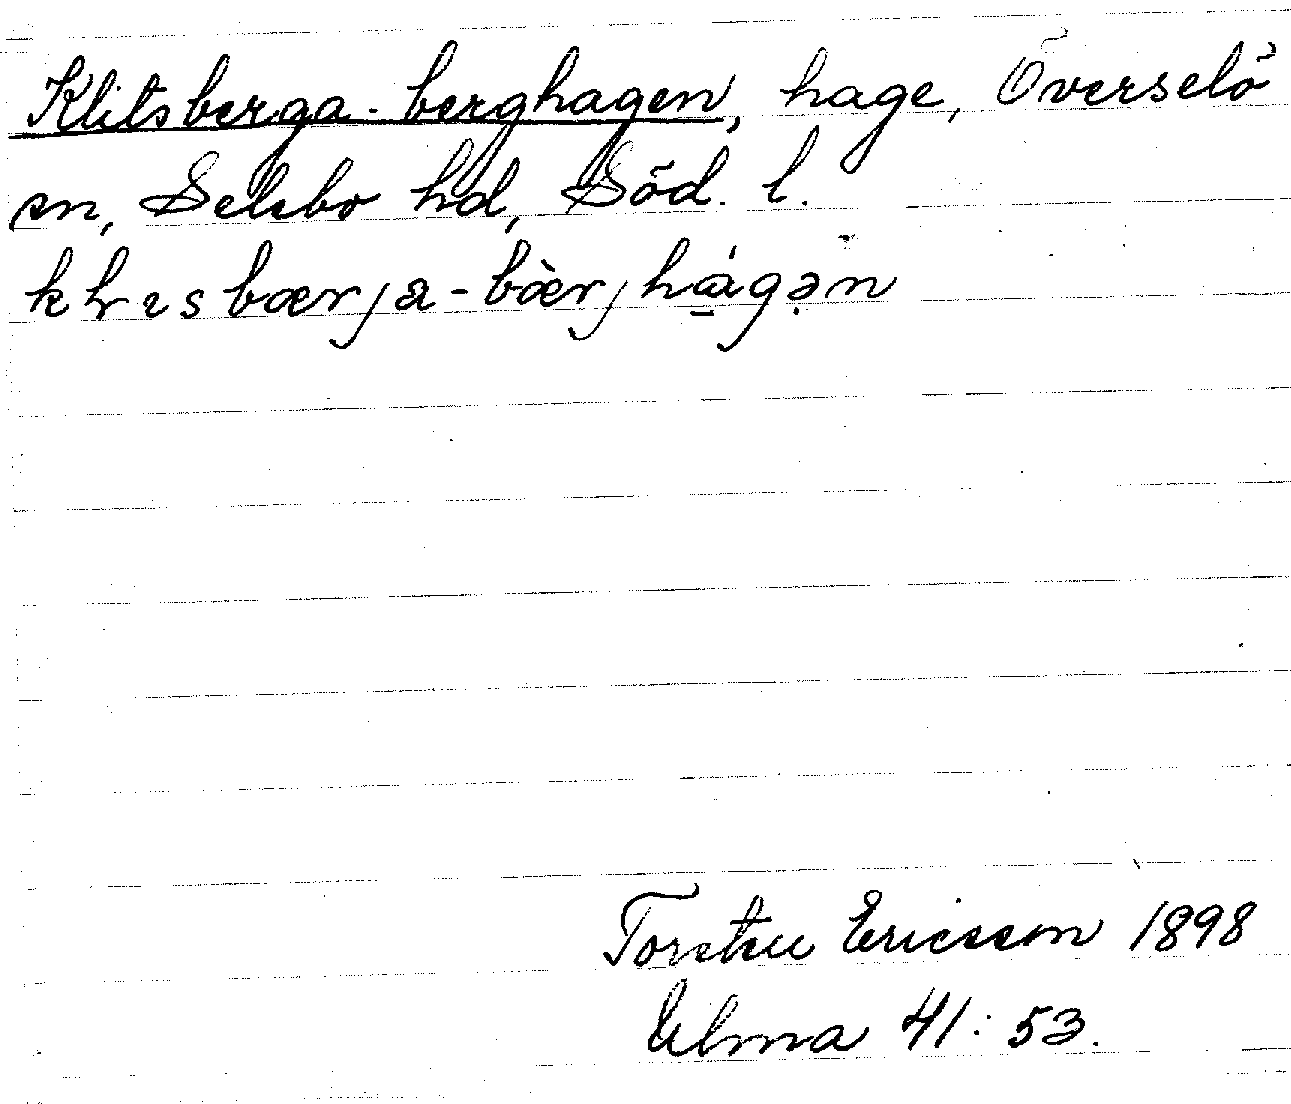 Klitsberga-berghagen, hage, Överselö
sn, Selebo hd, Söd. l.
-bæ̀rjhágən
Torsten Ericsson 1898
Ulma 41:53.